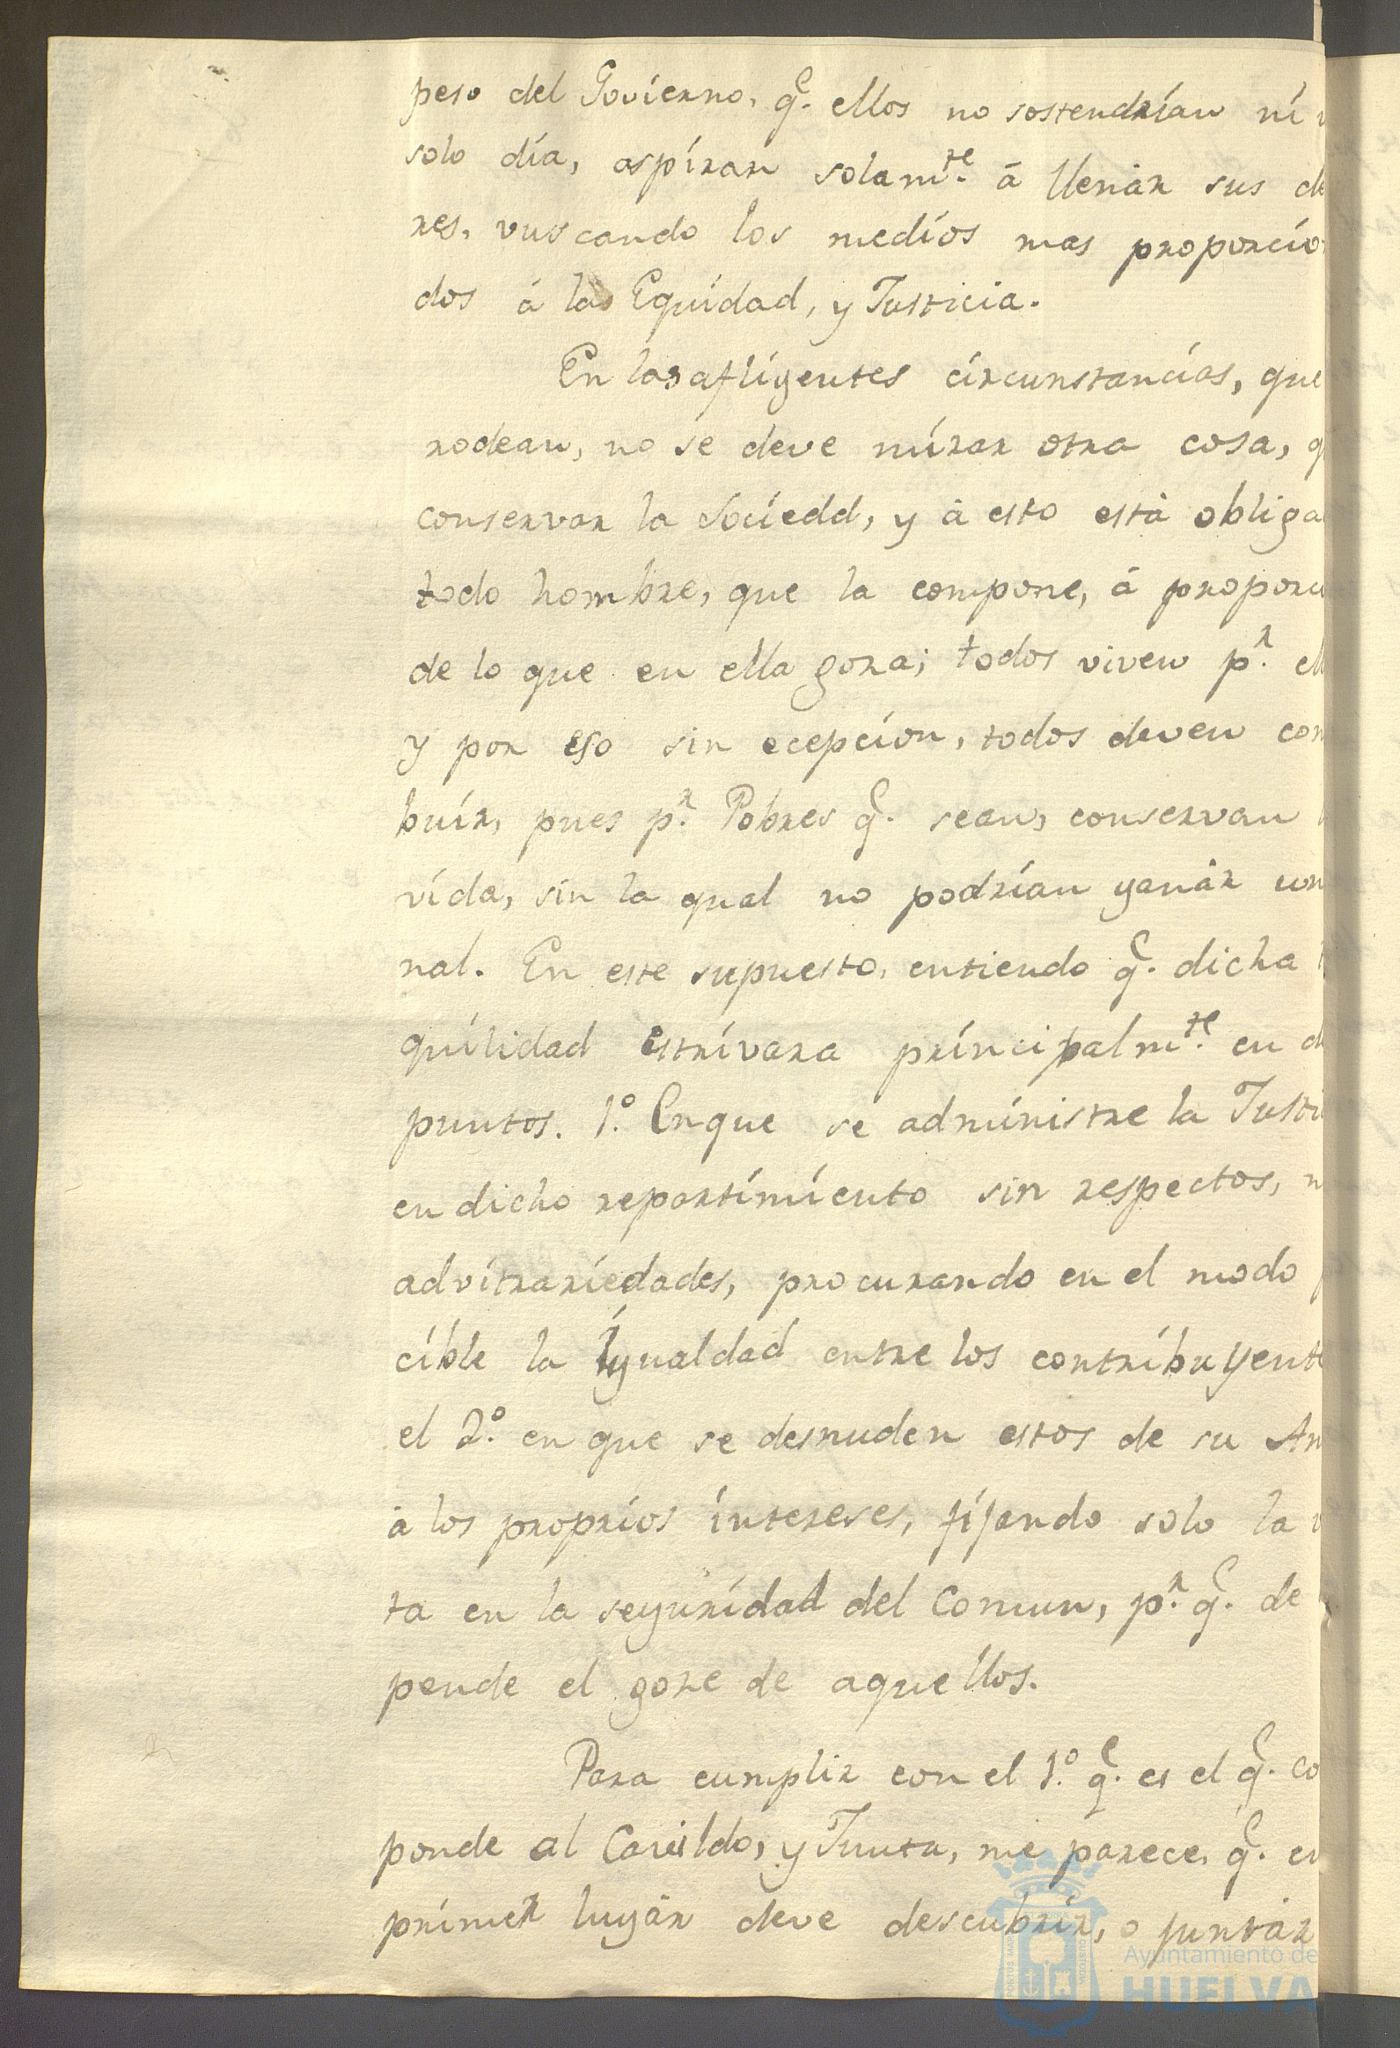 peso del Govierno, q.e ellos no sostendrían ni
solo día, aspiran solam.te á llenár sus de
res, vuscando los medios mas proporcio
dos á las Equidad, y Justicia.
En las afligentes circunstancias, que
rodean, no se deve mirar otra cosa, q
conservar la Sociedd, y á esto está obliga
todo hombre, que la compone, á proporci
de lo que en ella goza; todos viven p.r ell
y por eso sin ecepcion, todos deven con
buír, pues p.r Pobres q.e sean, conservan
vida, sin la qual no podrían ganár
nal. En este supuesto, entiendo q.e dicha
quilidad estrivara principalm.te en d
puntos. 1.o En que se administre la Justi
en dicho repartimiento sin respectos, n
advitrariedades, procurando en el modo
cible la Igualdad entre los contribuyent
el 2.o en que se desnuden estos de su Am
á los proprios intereses, fijando solo la v
ta en la seguridad del Comun, p.r q.e de
pende el goze de aquellos.
Para cumplir con el 1.o q.e es el q.e co
ponde al Cavildo, y Junta, me parece, q.e en
primer lugár deve descubrir, o juntár
Ayuntamiento de
HUELVA